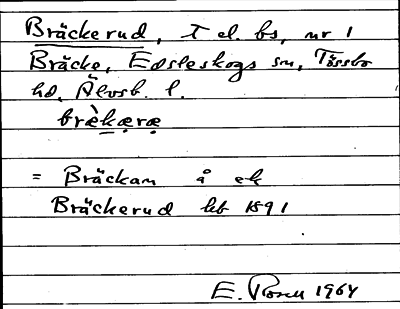 Bräckerud, T el. bs, nr 1
Bräcke, Edsleskogs sn, Tössbo
hd, Älvsb. l.
brækæræ
= Bräckan å ek
Bräckerud kb 1891
E. Rosell 1964